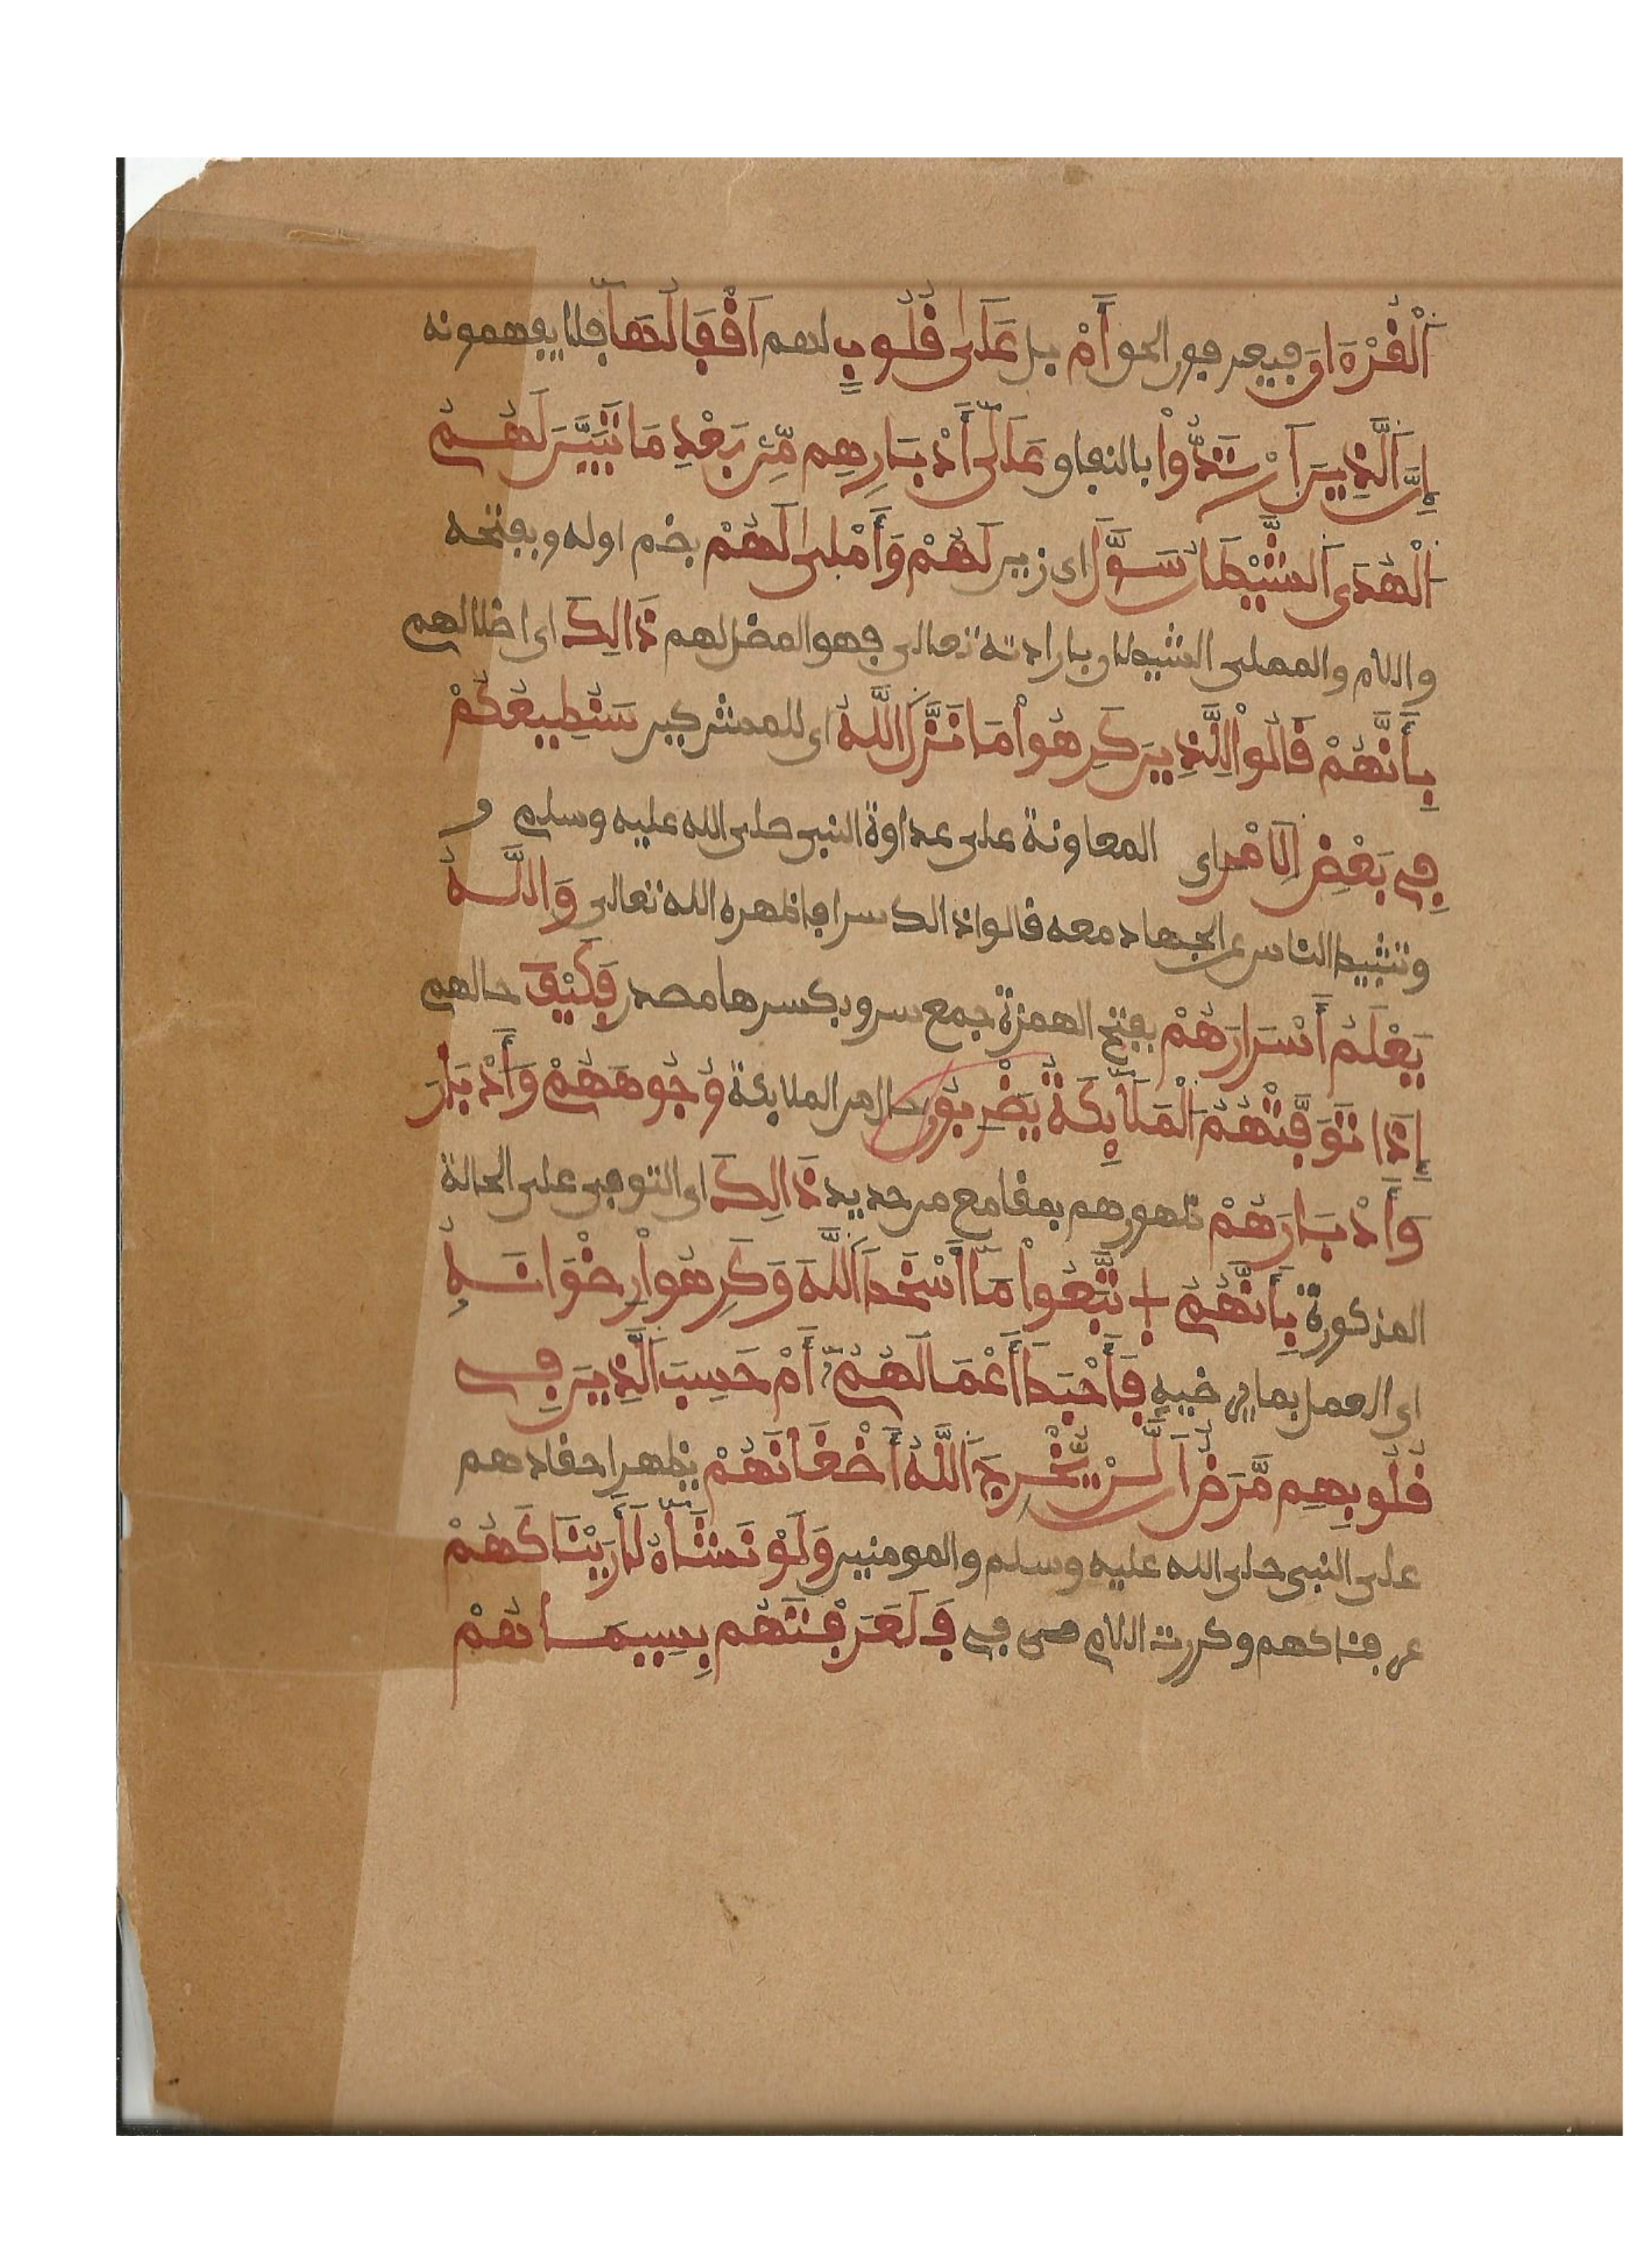 اَلْقُرْءَانَ فيعرفون الحق أَمْ بل عَلَىٰ قُلُوبٍ لهم أَقْفَالُهَا فلا يفهمونه
إِنَّ اَلَّذِينَ اَرْتَدُّواْ بالنفاق عَلَىٰ أَدْبَارِهِم مِّنۢ بَعْدِ مَا تَبَيَّنَ لَهُمُ
اَلْهُدَى اَلشَّيْطَانُ سَوَّلَ اى زين لَهُمْ وَأَمْلَىٰ لَهُمْ بضم اوله وبفتحه
واللام والمملى الشيطان بارادته تعالى فهو المضل لهم ذَالِكَ اى اضلالهم
بِأَنَّهُمْ قَالُواْ لِلَّذِينَ كَرِهُواْ مَا نَزَّلَ اَللَّهُ اى للمشركين سَنُطِيعُكُمْ
فِي بَعْضِ اِلَامْرِ اى المعاونة على عداوة النبى صلى الله عليه وسلم و
وتثبيط الناس عن الجهاد معه قالوا ذالك سرا فاظهره الله تعالى وَاللَّهُ
يَعْلَمُ أَسْرَارَهُمْ بفتح الهمزة جمع سر وبكسرها مصدر فَكَيْفَ حالهم
إِذَا تَوَفَّتْهُمُ اَلْمَلَٰٓئِكَةُ يَضْرِبُونَ حال من الملائكة وُجُوهَهُمْ وَأَدْبَٰرَ
وَأَدْبَارَهُمْ ظهورهم بمقامع من حديد ذَالِكَ اى التوفى على الحالة
المذكورة بِأَنَّهُمُ اتَّبَعُواْ مَا أَسْخَطَ اَللَّهَ وَكَرِهُواْ رِضْوَانَهُ
اى العمل بما يرضيه فَأَحْبَطَ أَعْمَالَهُمْ أَمْ حَسِبَ اَلَّذِينَ فِي
قُلُوبِهِم مَّرَضٌ أَن لَّنْ يُّخْرِجَ اَللَّهُ أَضْغَانَهُمْ يظهر احقادهم
على النبى صلى الله عليه وسلم والمومنين وَلَوْ نَشَآءُ لَأَرَيْنَاكَهُمْ
عرفناكهم وكررت اللام فى فَلَعَرَفْتَهُم بِسِيمَاهُمْ